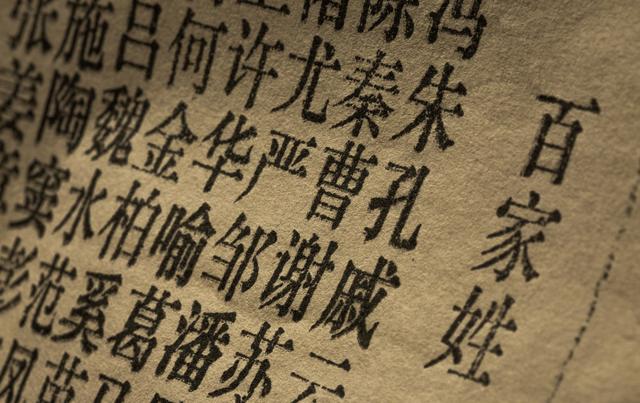 百家姓
冯陈褚卫
朱秦尤许何吕施张
孔曹严华金魏陶姜
戚谢邹喻柏水窦章
云苏潘葛奚范彭
马苗凤